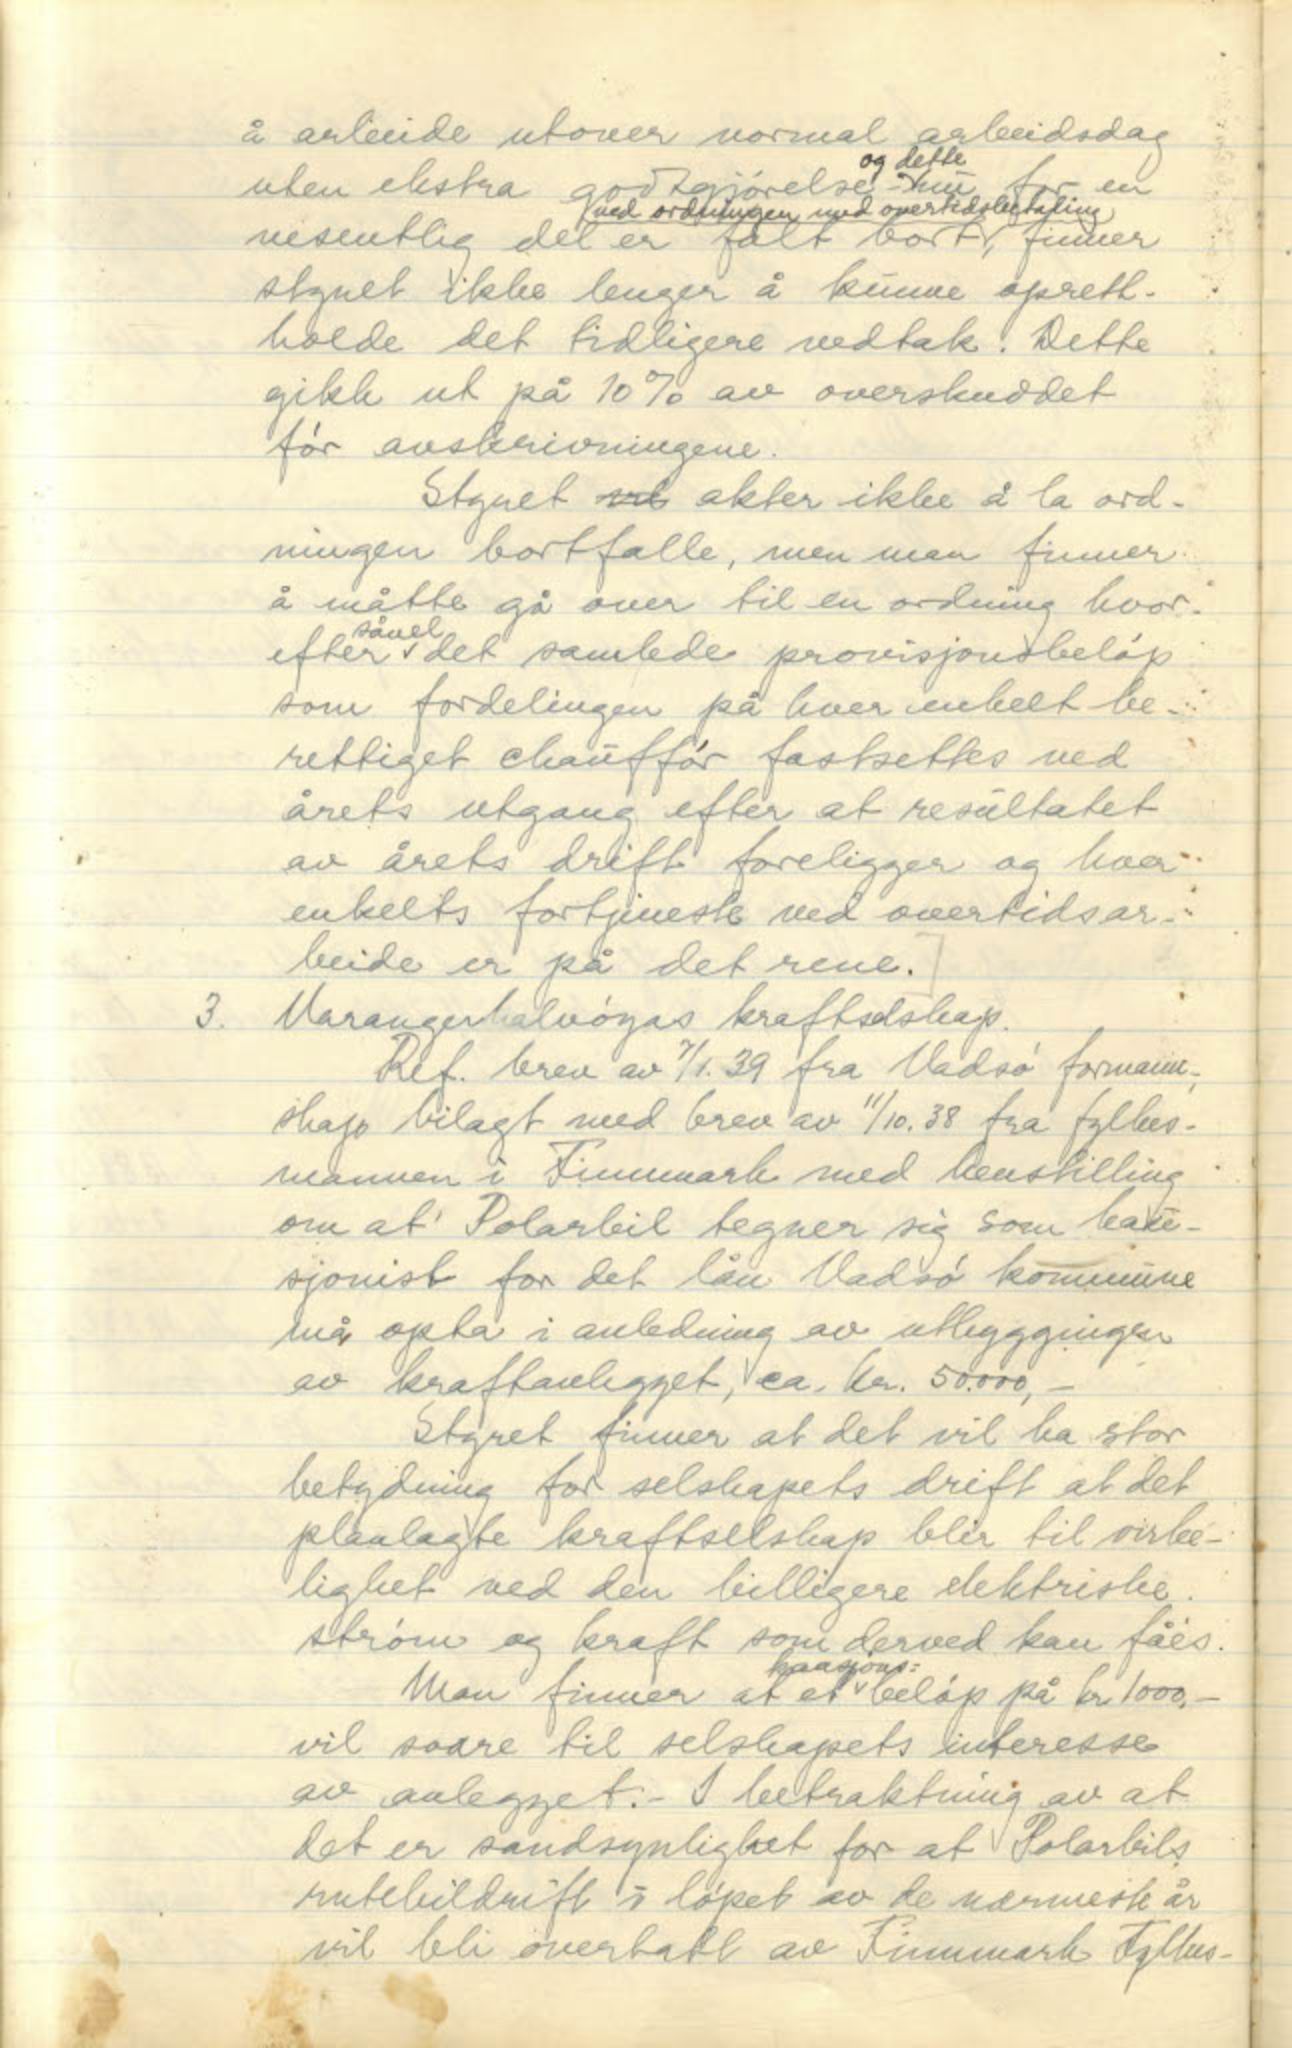 å arbeide utover normal arbeidsdag
og dette
uten ekstra godtgjörelse nu for en
ved ordningen med overtidsbetaling
vesentlig del er falt bort, finner
styret ikke lenger å kunne oprett-
holde det tidligere vedtak. Dette
gikk ut på 10% av overskuddet
för avskrivningene.
Styret akter ikke å la ord-
ningen bortfalle, men man finner
å måtte gå over til en ordning hvor-
såvel
efter det samlede provisjonsbelöp
som fordelingen på hver enkelt be-
rettiget chaufför fastsettes ved
årets utgang efter at resultatet
av årets drift foreligger og hver
enkelts fortjeneste ved overtidsar-
beide er på det rene.]
3. Varangerhalvöyas kraftselskap.
Ref. brev av 7/1.39 fra Vadsö formann-
skap bilagt med brev av 11/10.38 fra fylkes-
mannen i Finnmark med henstilling
om at Polarbil tegner sig som kau-
sjonist for det lån Vadsö kommune
må opta i anledning av utbyggingen
av kraftanlegget, ca. kr. 50.000,-
Styret finner at det vil ha stor
betydning for selskapets drift at det
planlagte kraftselskap blir til virke-
lighet ved den billigere elektriske
ström og kraft som derved kan fåes.
kausjons-
Man finner at et belöp på kr 1000,-
vil svare til selskapets interesse
av anlegget.- I betraktning av at
det er sandsynlighet for at Polarbils
rutebildrift i löpet av de nærmeste år
vil bli overtatt av Finnmark Fylkes-